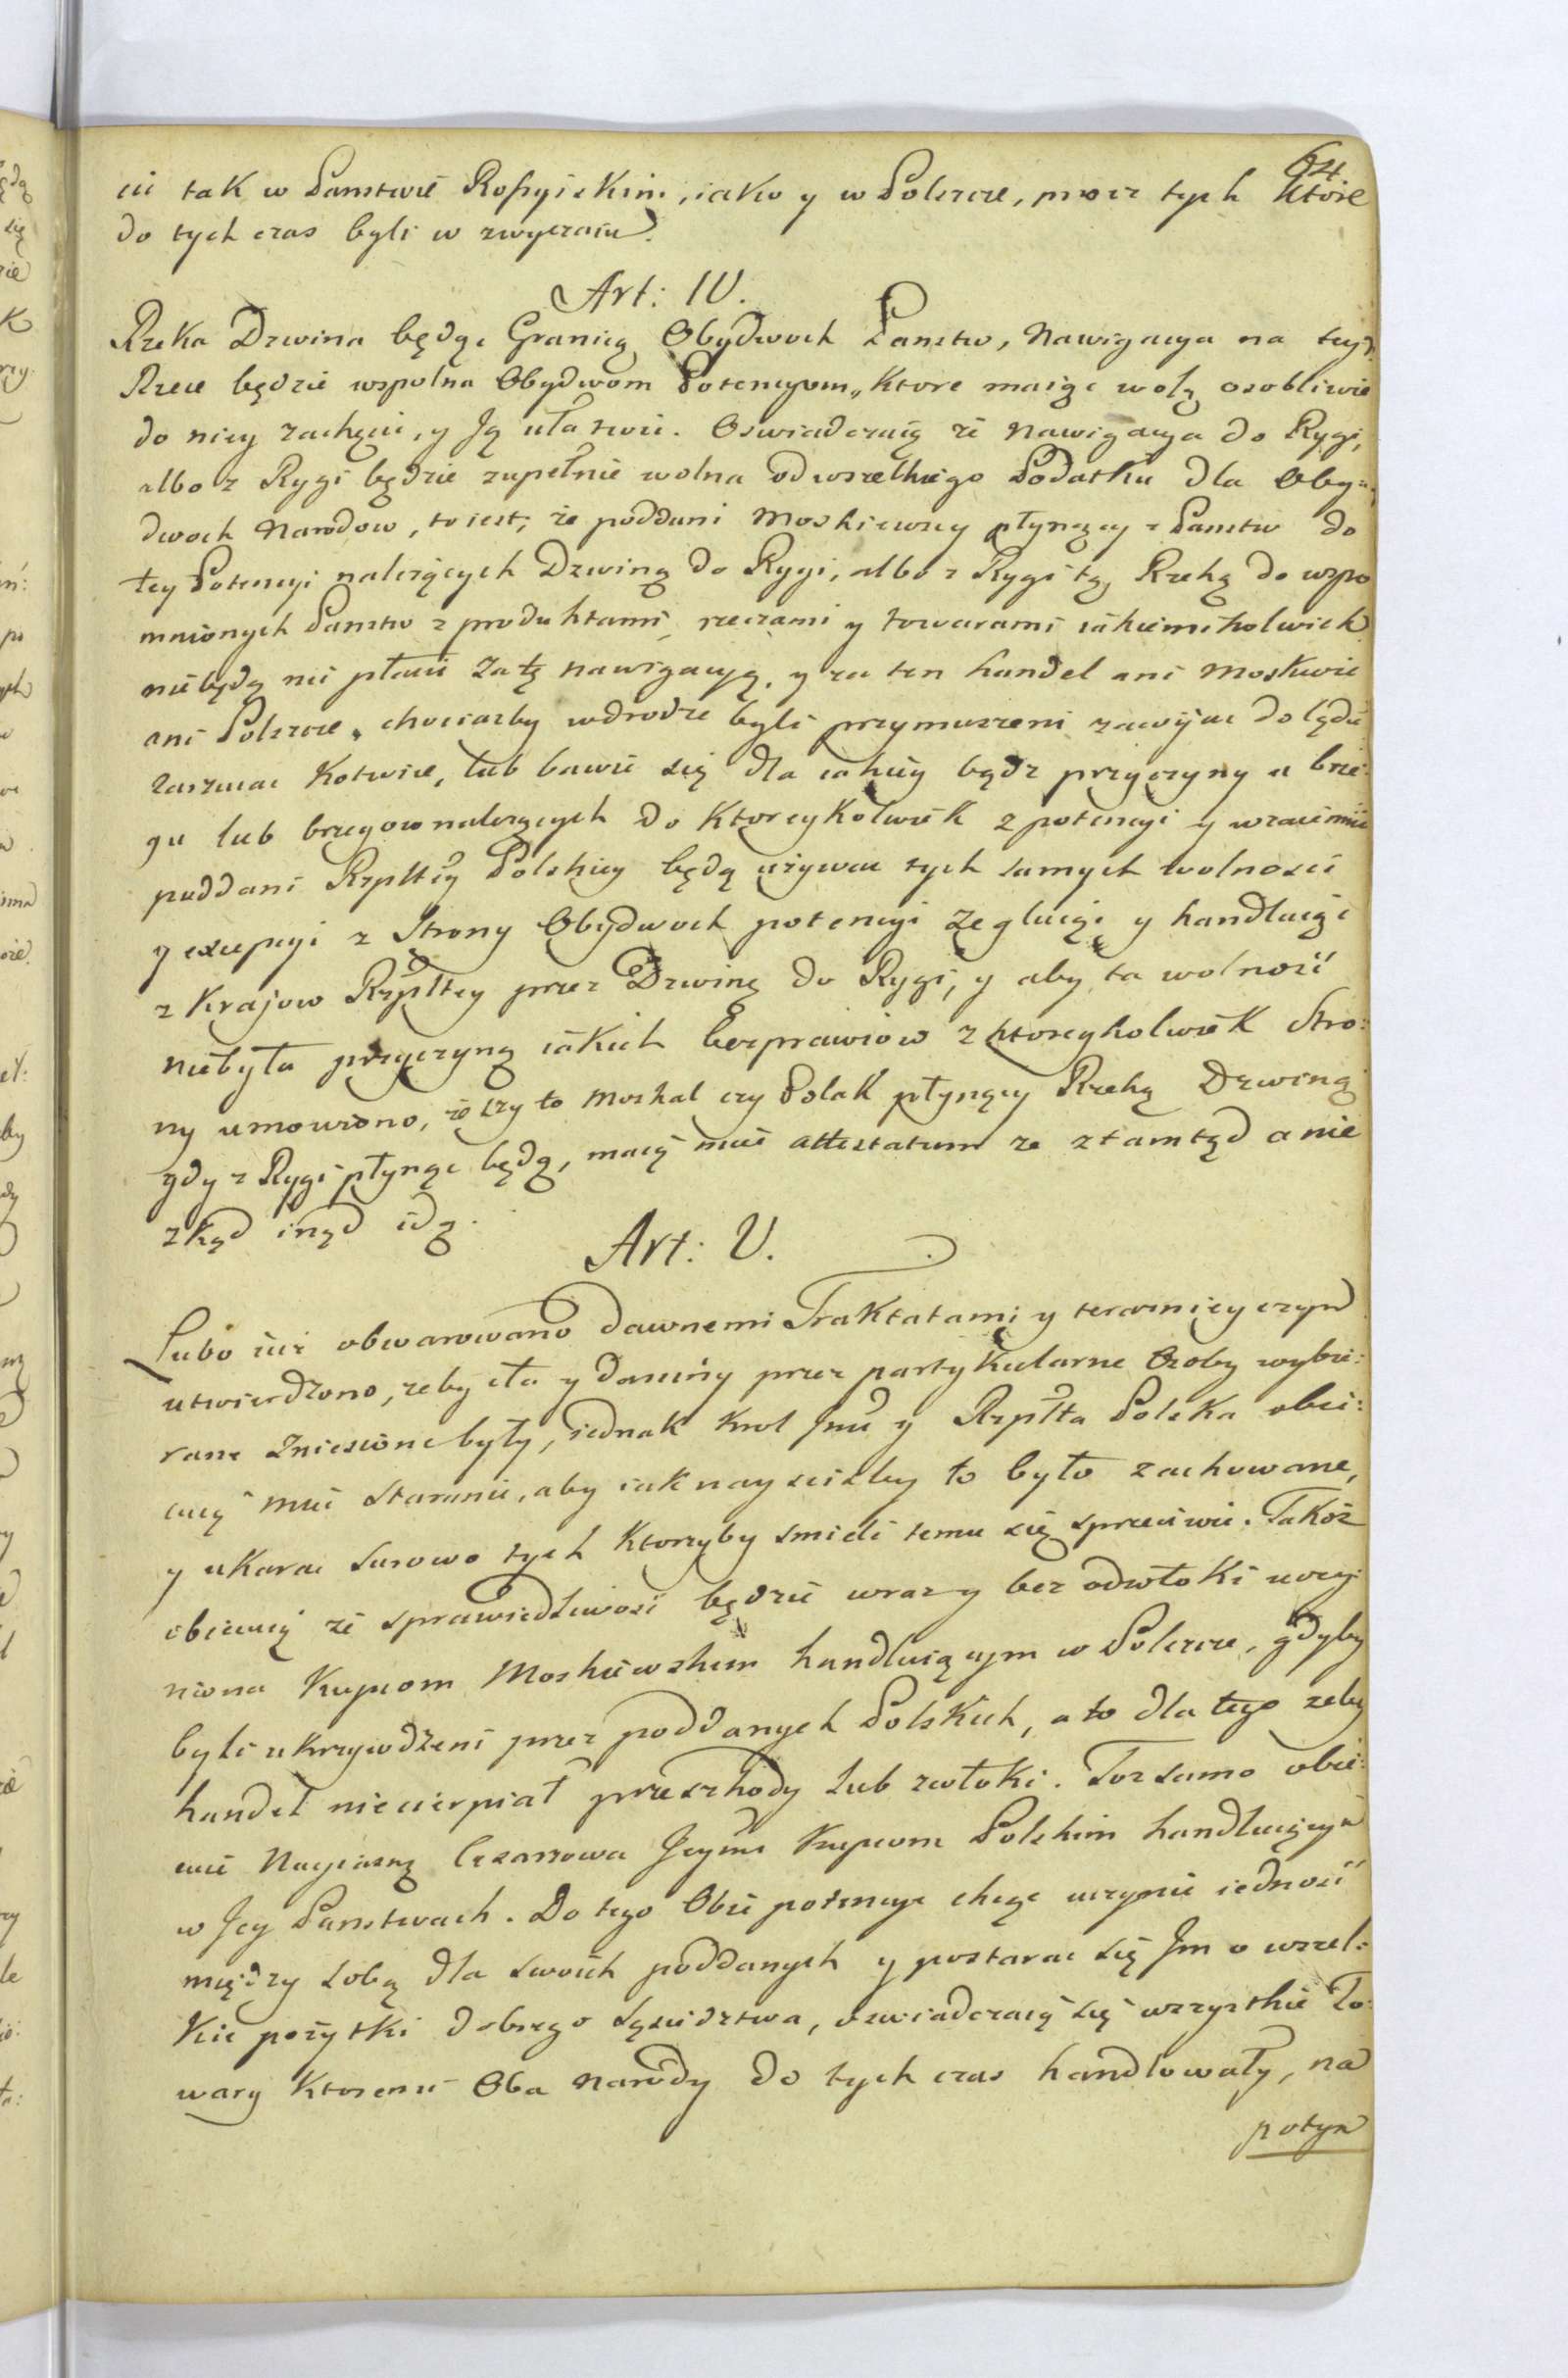 64
ci tak w Panstwie Rossyiskim, iako y w Polszcze, procz tych ktore
do tych czas byli w zwyczaiu.
Art: IV.
Rzeka Dzwina będąc Granicą Obydwoch Panstw, Nawigacya na tey
Rzece będzie wspolna Obydwom Potencyom, Ktore maiąc wolą osobliwie
do niey zachęcic, y Ją ułatwic. Oswiadczaią ze Nawigacya do Rygi,
albo z Rygi będzie zupełnie wolna od wszelkiego Podatku dla Oby-
dwoch Narodow, to iest, że poddani Moskiewscy płynący z Panstw do
tey Potencyi należących Dzwiną do Rygi, albo z Rygi tą Rzeką do wspo
mnionych Panstw z produktami, rzeczami y towarami iakiemikolwiek
niebędą nic płacic za tę nawigacyą, y za ten handel ani Moskwie
ani Polszcze, chociazby wdrodze byli przymuszeni zawijac do lądu
zarzucac Kotwice, lub bawic się dla iakiey bądz przyczyny u brze-
gu lub brzegow należących do Ktoreykolwiek z potencyi y wzaiemnie
poddani Rzpltey Polskiey będą używac tych samych wolnosci
y exempcyi z Strony Obydwoch potencyi żegluiąc y handluiąc
z Krajow Rzpltey przez Dzwinę do Rygi, y aby ta wolność
niebyła przyczyną iakich bezprawiow z ktoreykolwiek Stro:
ny umowiono, że czy to Moskal czy Polak płynący Rzeką Dzwiną
gdy z Rygi płynąc będą, maią miec attestatum ze ztamtąd a nie
zkąd inąd idą.
Art: V.
Lubo iuż obwarowano dawnemi Traktatami y teraznieyczym
utwierdzono, zeby cła y daniny przez partykularne Osoby wybie:
rane zniesione były, iednak Krol Jmć y Rzplta Polska obie:
cuią miec staranie, aby iak nayscisley to było zachowane,
y ukarac surowo tych Ktorzyby smieli temu się sprzeciwic. Takoż
obiecuią że sprawiedliwosc będzie wraz y bez odwłoki uczy:
niona Kupcom Moskiewskim handluiącym w Polszcze, gdyby
byli ukrzywdzeni przez poddanych Polskich, a to dla tego zeby
handel niecierpiał przeszkody lub zwłoki. Toz samo obie:
cuie Nayiasną Cesarzowa Jeymc Kupcom Polskim handluiącym
w Jey Panstwach. Do tego Obie potencye chcąc uczynic iedność
między sobą dla swoich poddanych y postarac się Jm o wszel:
kie pożytki dobrego sąsiedztwa, oswiadczaią się wszystkie To:
wary Ktoremi Oba Narody do tych czas handlowały, na
potym